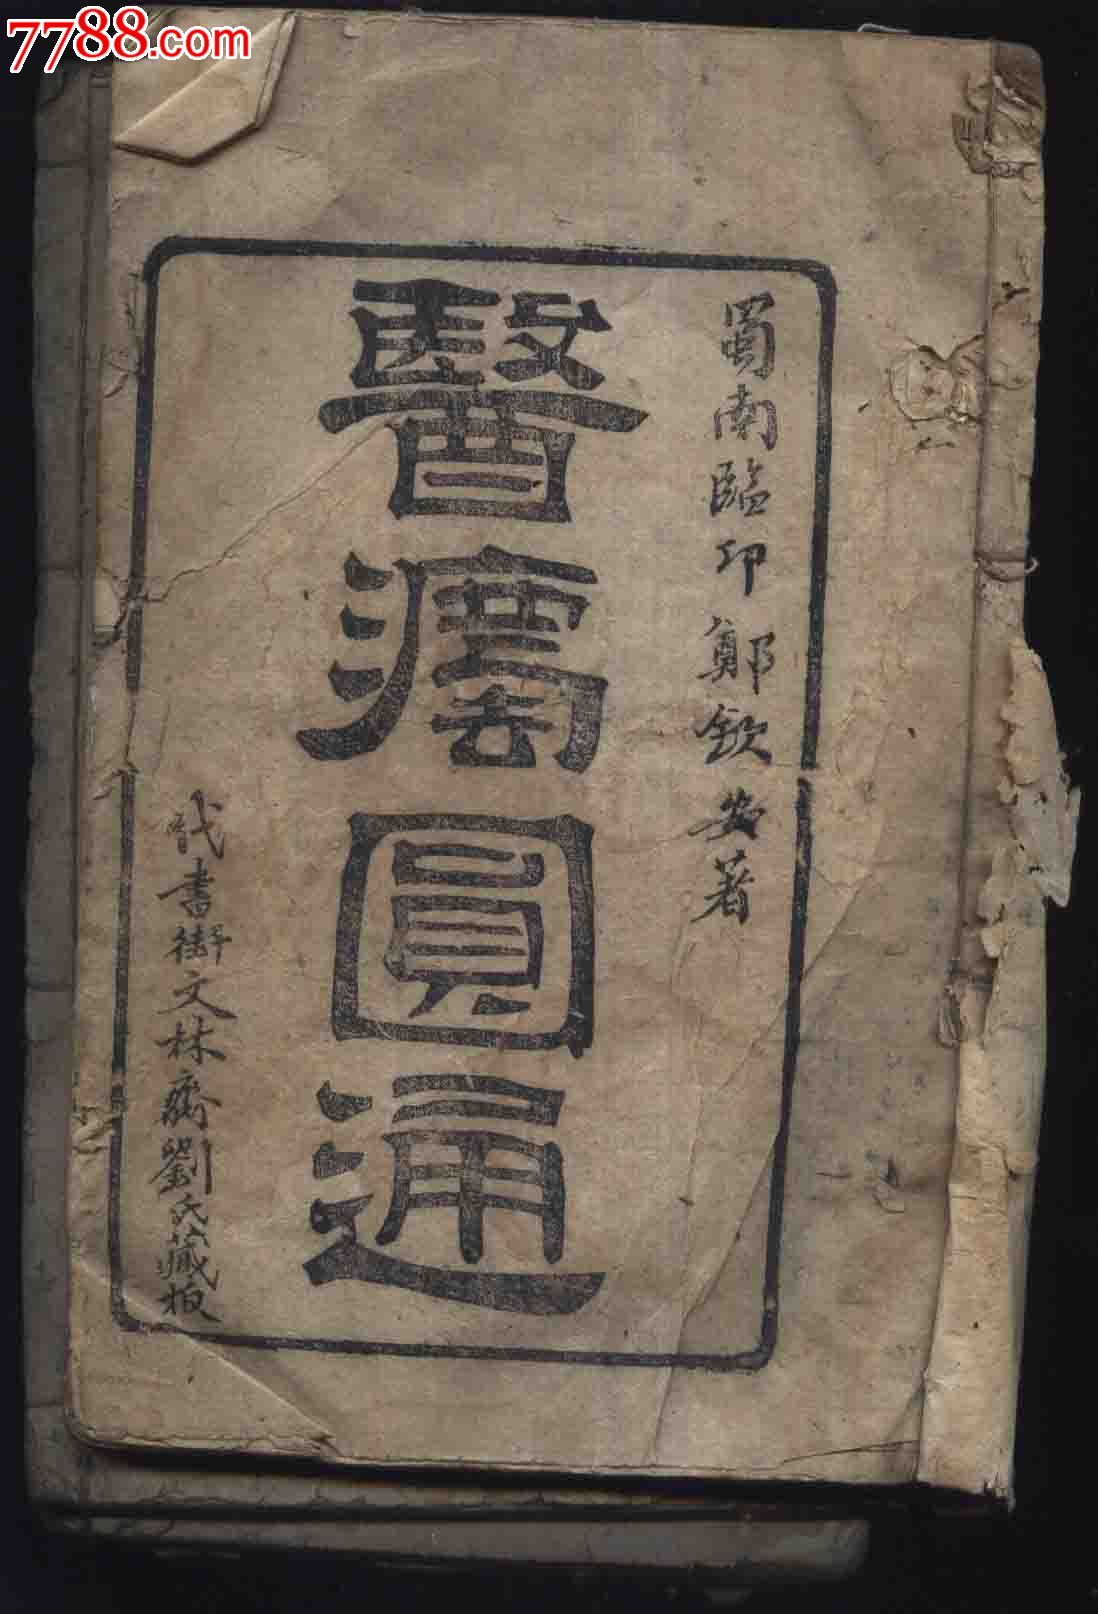 7788.com
蜀南臨邛鄭欽安著
醫灋圓通
書街文林齋劉氏藏板